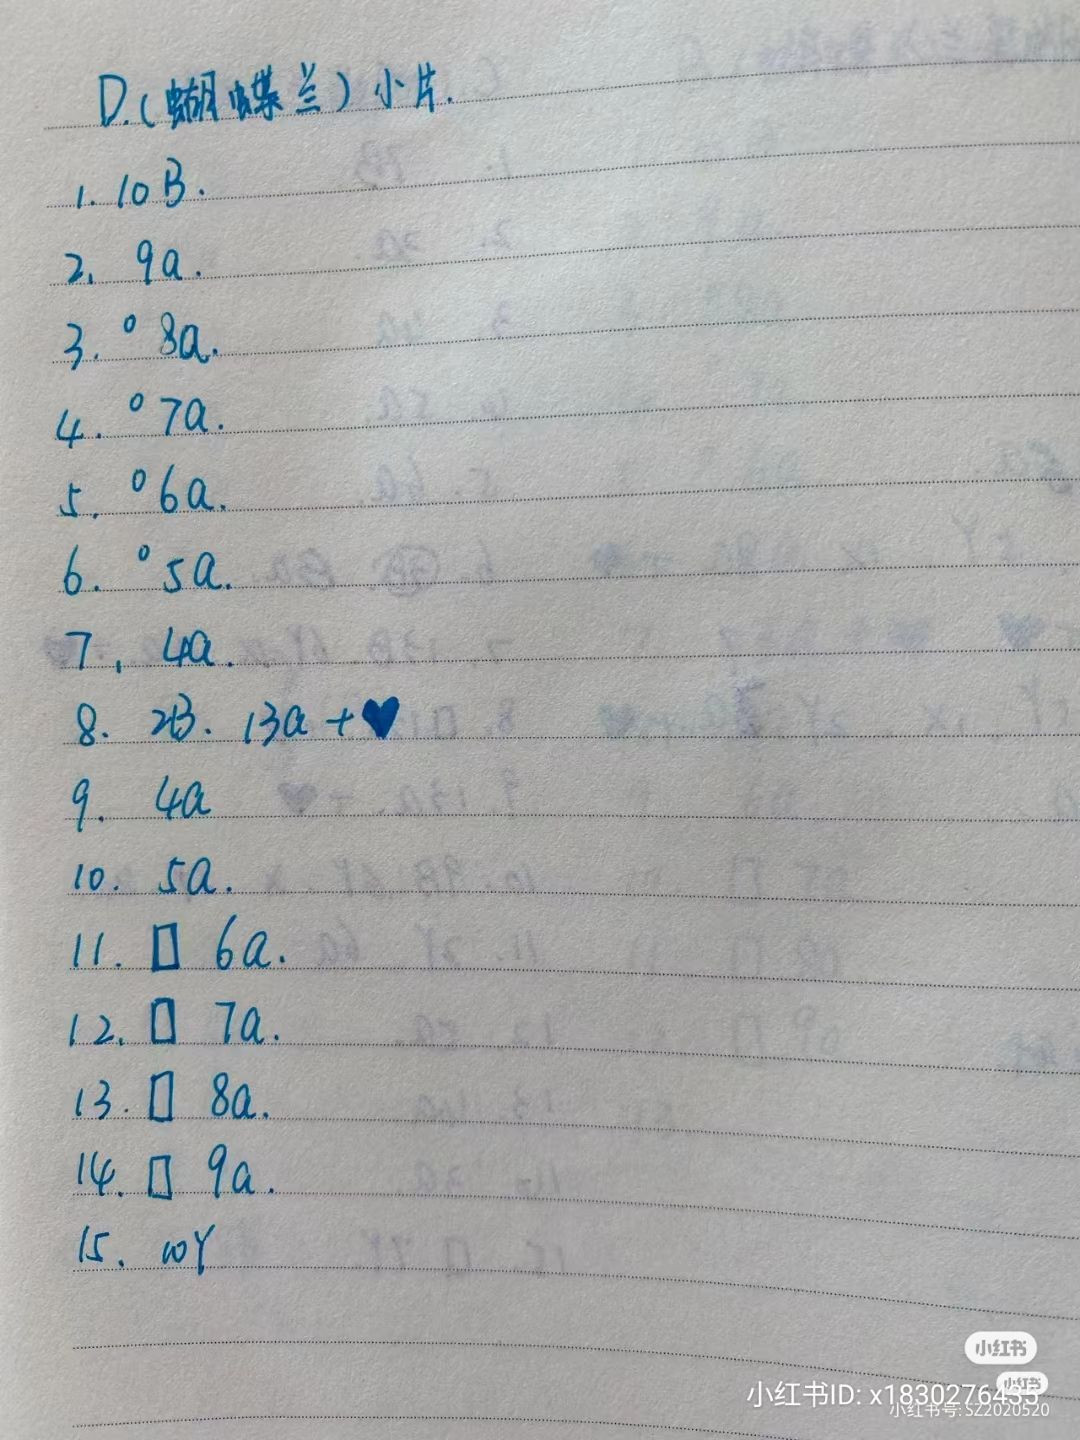 D.(蝴蝶兰)小片.
1. 10B.
2. 9a.
3. ° 8a.
4. ° 7a.
5. ° 6a.
6. ° 5a.
7. 4a.
8. 2B. 13a + ♥
9. 4a
10. 5a.
11. ▯ 6a.
12. ▯ 7a.
13. ▯ 8a.
14. ▯ 9a.
15. 10Y
小红书
小红书
小红书ID: x1830276435
小红书号:SZ2020520